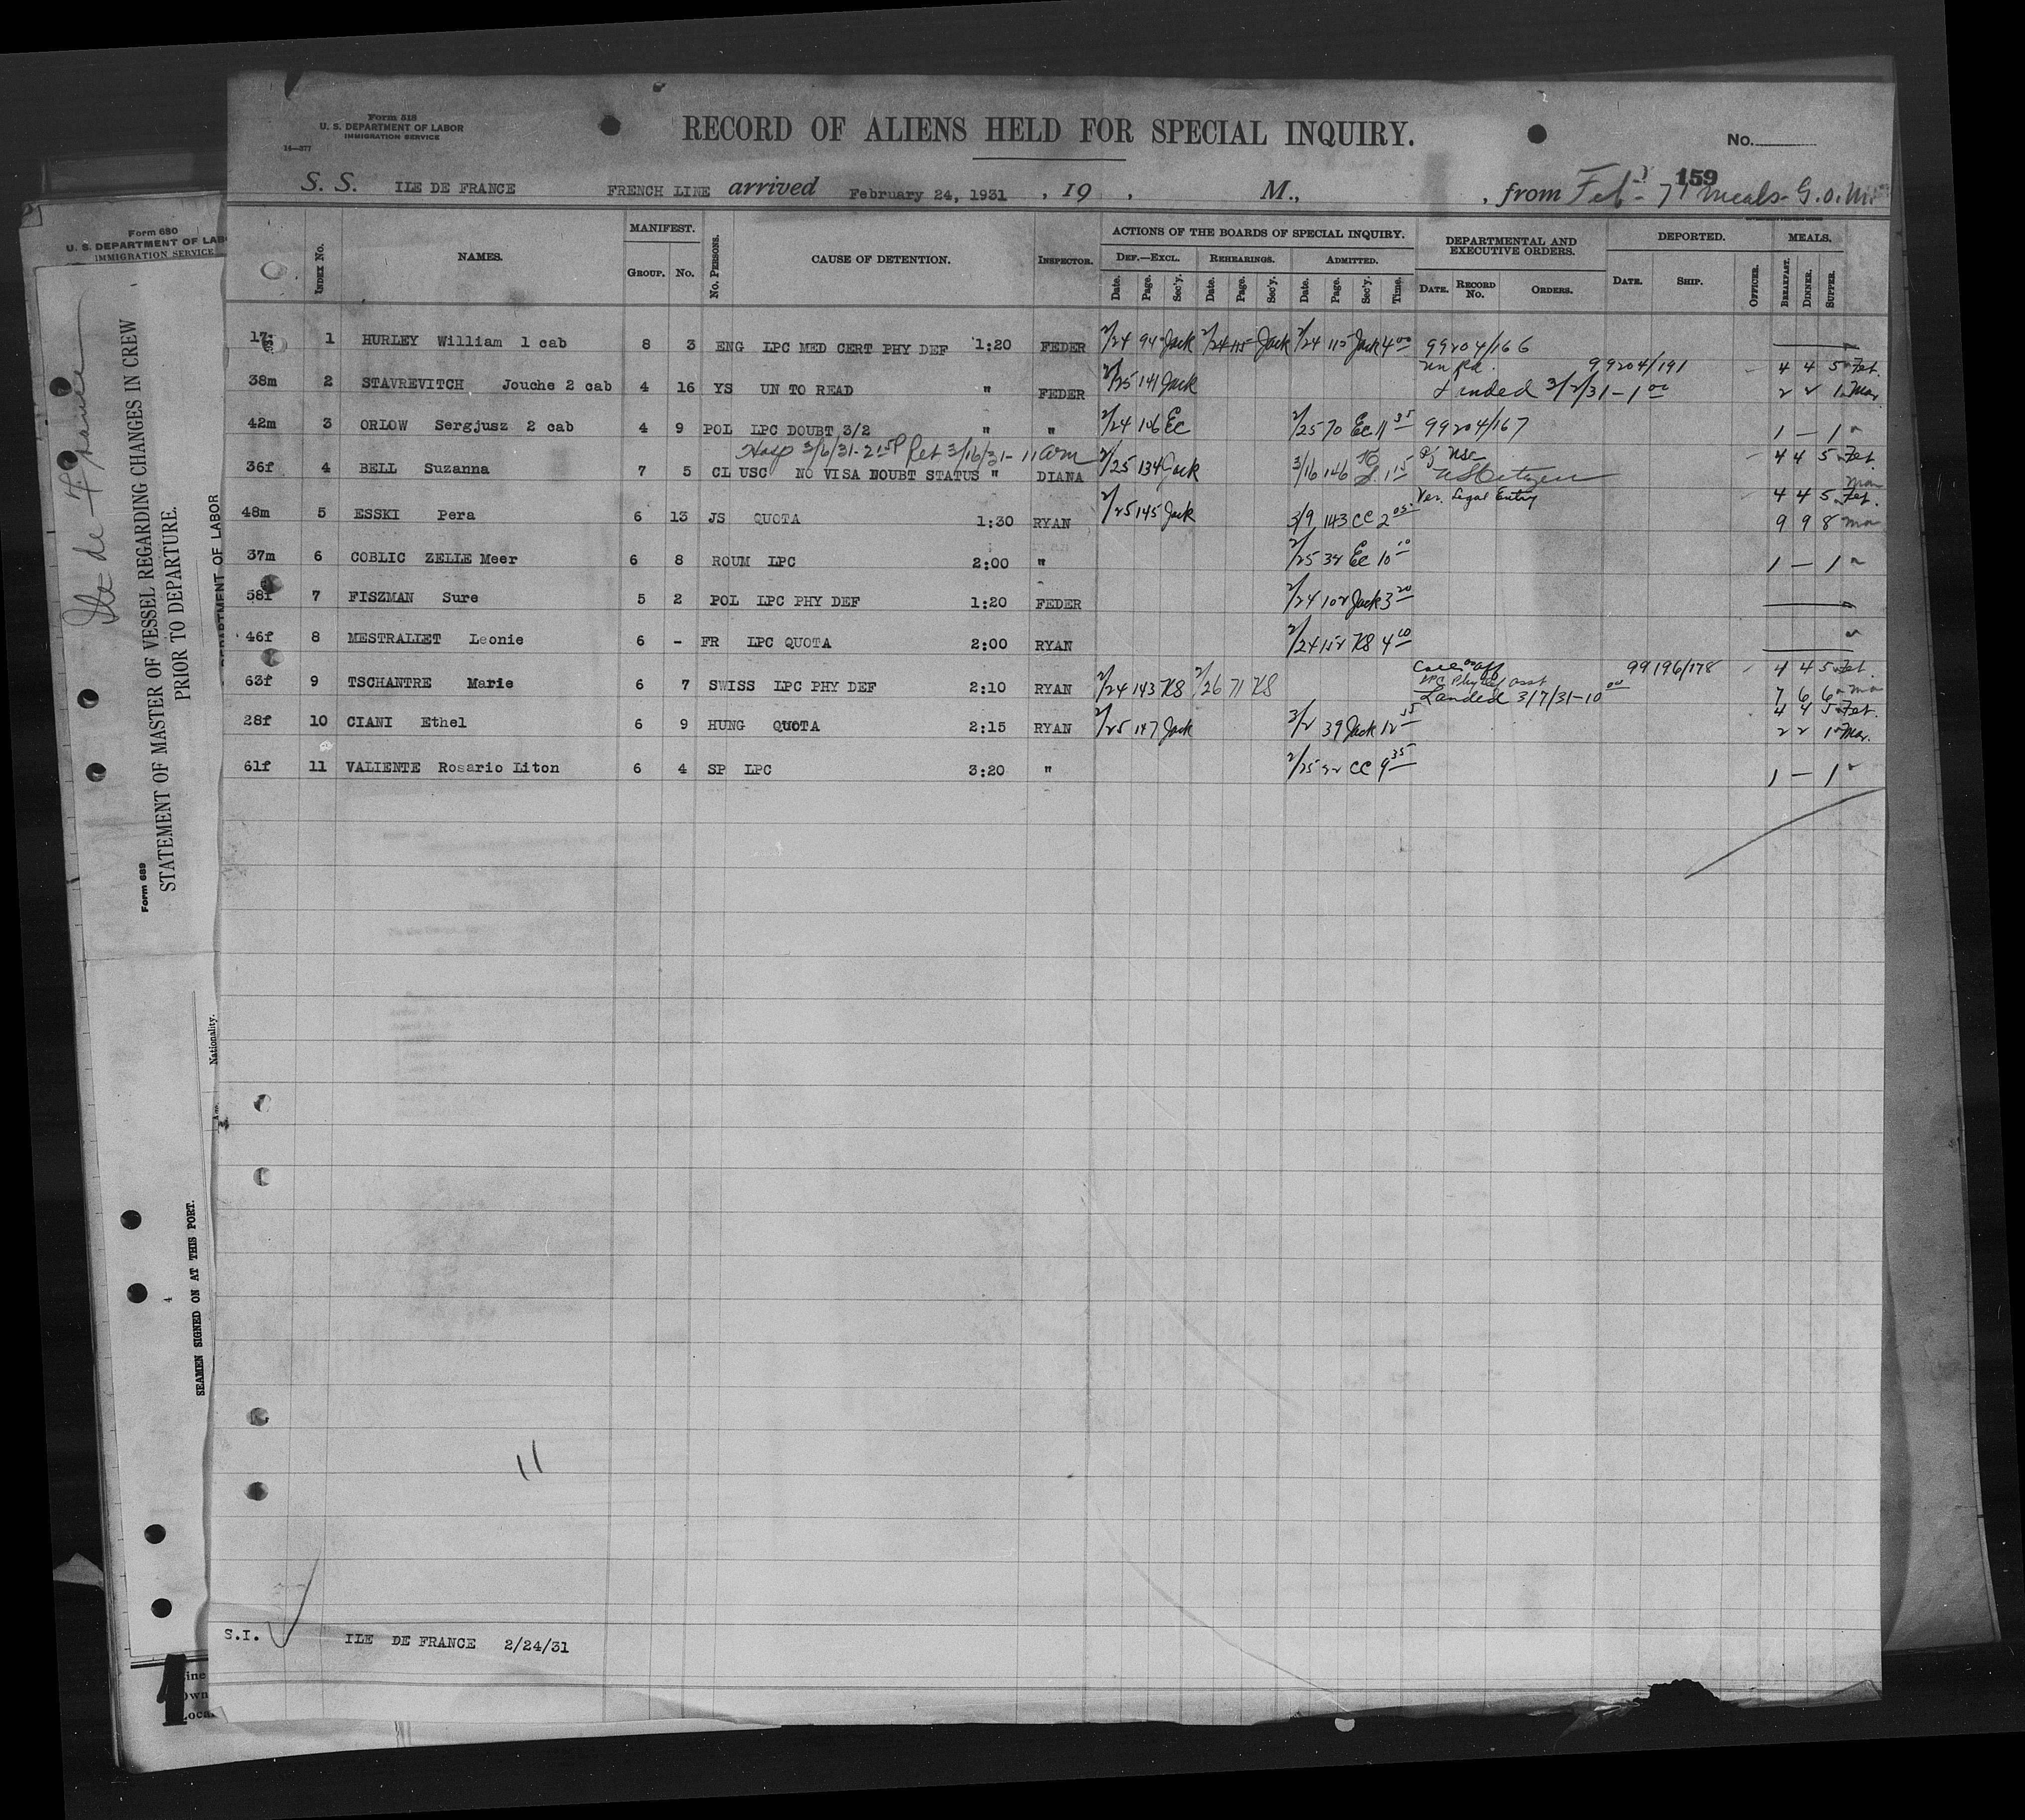 Form 518
U. S. DEPARTMENT OF LABOR
IMMIGRATION SERVICE
14—377
RECORD OF ALIENS HELD FOR SPECIAL INQUIRY.
No.
159
S. S. ILE DE FRANCE FRENCH LINE arrived February 24, 1931 , 19 , M., , from Feb - 71 meals - G.O.M.
Index No. NAMES. MANIFEST. Group. No. No. Persons. CAUSE OF DETENTION. Inspector. ACTIONS OF THE BOARDS OF SPECIAL INQUIRY. DEPARTMENTAL AND EXECUTIVE ORDERS. DEPORTED. MEALS.
Def.—Excl. Rehearings. Admitted.
Date. Page. Sec'y. Date. Page. Sec'y. Date. Page. Sec'y. Time. Date. Record No. Orders. Date. Ship. Officer. Breakfast. Dinner. Supper.
1 HURLEY William 1 cab 8 3 ENG LPC MED CERT PHY DEF 1:20 FEDER 2/24 94 Jack 2/24 115 Jack 2/24 115 Jack 4 00 99204/166
38m 2 STAVREVITCH Jouche 2 cab 4 16 YS UN TO READ " FEDER 2/25 141 Jack un Rd. 99204/191 4 4 5 Feb.
Landed 3/2/31 - 1 00 2 2 1 Mar
42m 3 ORLOW Sergjusz 2 cab 4 9 POL LPC DOUBT 3/2 " " 2/24 146 Ec 2/25 70 Ec 11 35 99204/167 1 — 1 "
Hosp 3/6/31 - 2 15 P Ret 3/16/31 - 11 am
36f 4 BELL Suzanna 7 5 CL USC NO VISA DOUBT STATUS " DIANA 2/25 134 Jack 3/16 146 1 15 US Citizen 4 4 5 Feb.
48m 5 ESSKI Pera 6 13 JS QUOTA 1:30 RYAN 2/25 145 Jack 3/9 143 CC 2 05 Ver. Legal Entry 4 4 5 Feb.
9 9 8 Mar
37m 6 COBLIC ZELLE Meer 6 8 ROUM LPC 2:00 " 2/25 32 Ec 10 10 1 — 1 "
58f 7 FISZMAN Sure 5 2 POL LPC PHY DEF 1:20 FEDER 2/24 102 Jack 3 20
46f 8 MESTRALLET Leonie 6 - FR LPC QUOTA 2:00 RYAN 2/24 152 KS 4 10
63f 9 TSCHANTRE Marie 6 7 SWISS LPC PHY DEF 2:10 RYAN 2/24 143 KS 2/26 71 KS LPC Phy def asst 99196/178 4 4 5 Feb.
Landed 3/7/31 - 10 00 7 6 6 Mar
28f 10 CIANI Ethel 6 9 HUNG QUOTA 2:15 RYAN 2/25 147 Jack 3/2 39 Jack 12 15 4 4 5 Feb.
2 2 1 Mar.
61f 11 VALIENTE Rosario Liton 6 4 SP LPC 3:20 " 2/25 32 CC 9 35 1 — 1 "
11
S.I. ILE DE FRANCE 2/24/31
Form 680
U. S. DEPARTMENT OF LAB
IMMIGRATION SERVICE
Ile de France
Form 689
STATEMENT OF MASTER OF VESSEL REGARDING CHANGES IN CREW
PRIOR TO DEPARTURE.
DEPARTMENT OF LABOR
Nationality.
Age.
SEAMEN SIGNED ON AT THIS PORT.
4
1